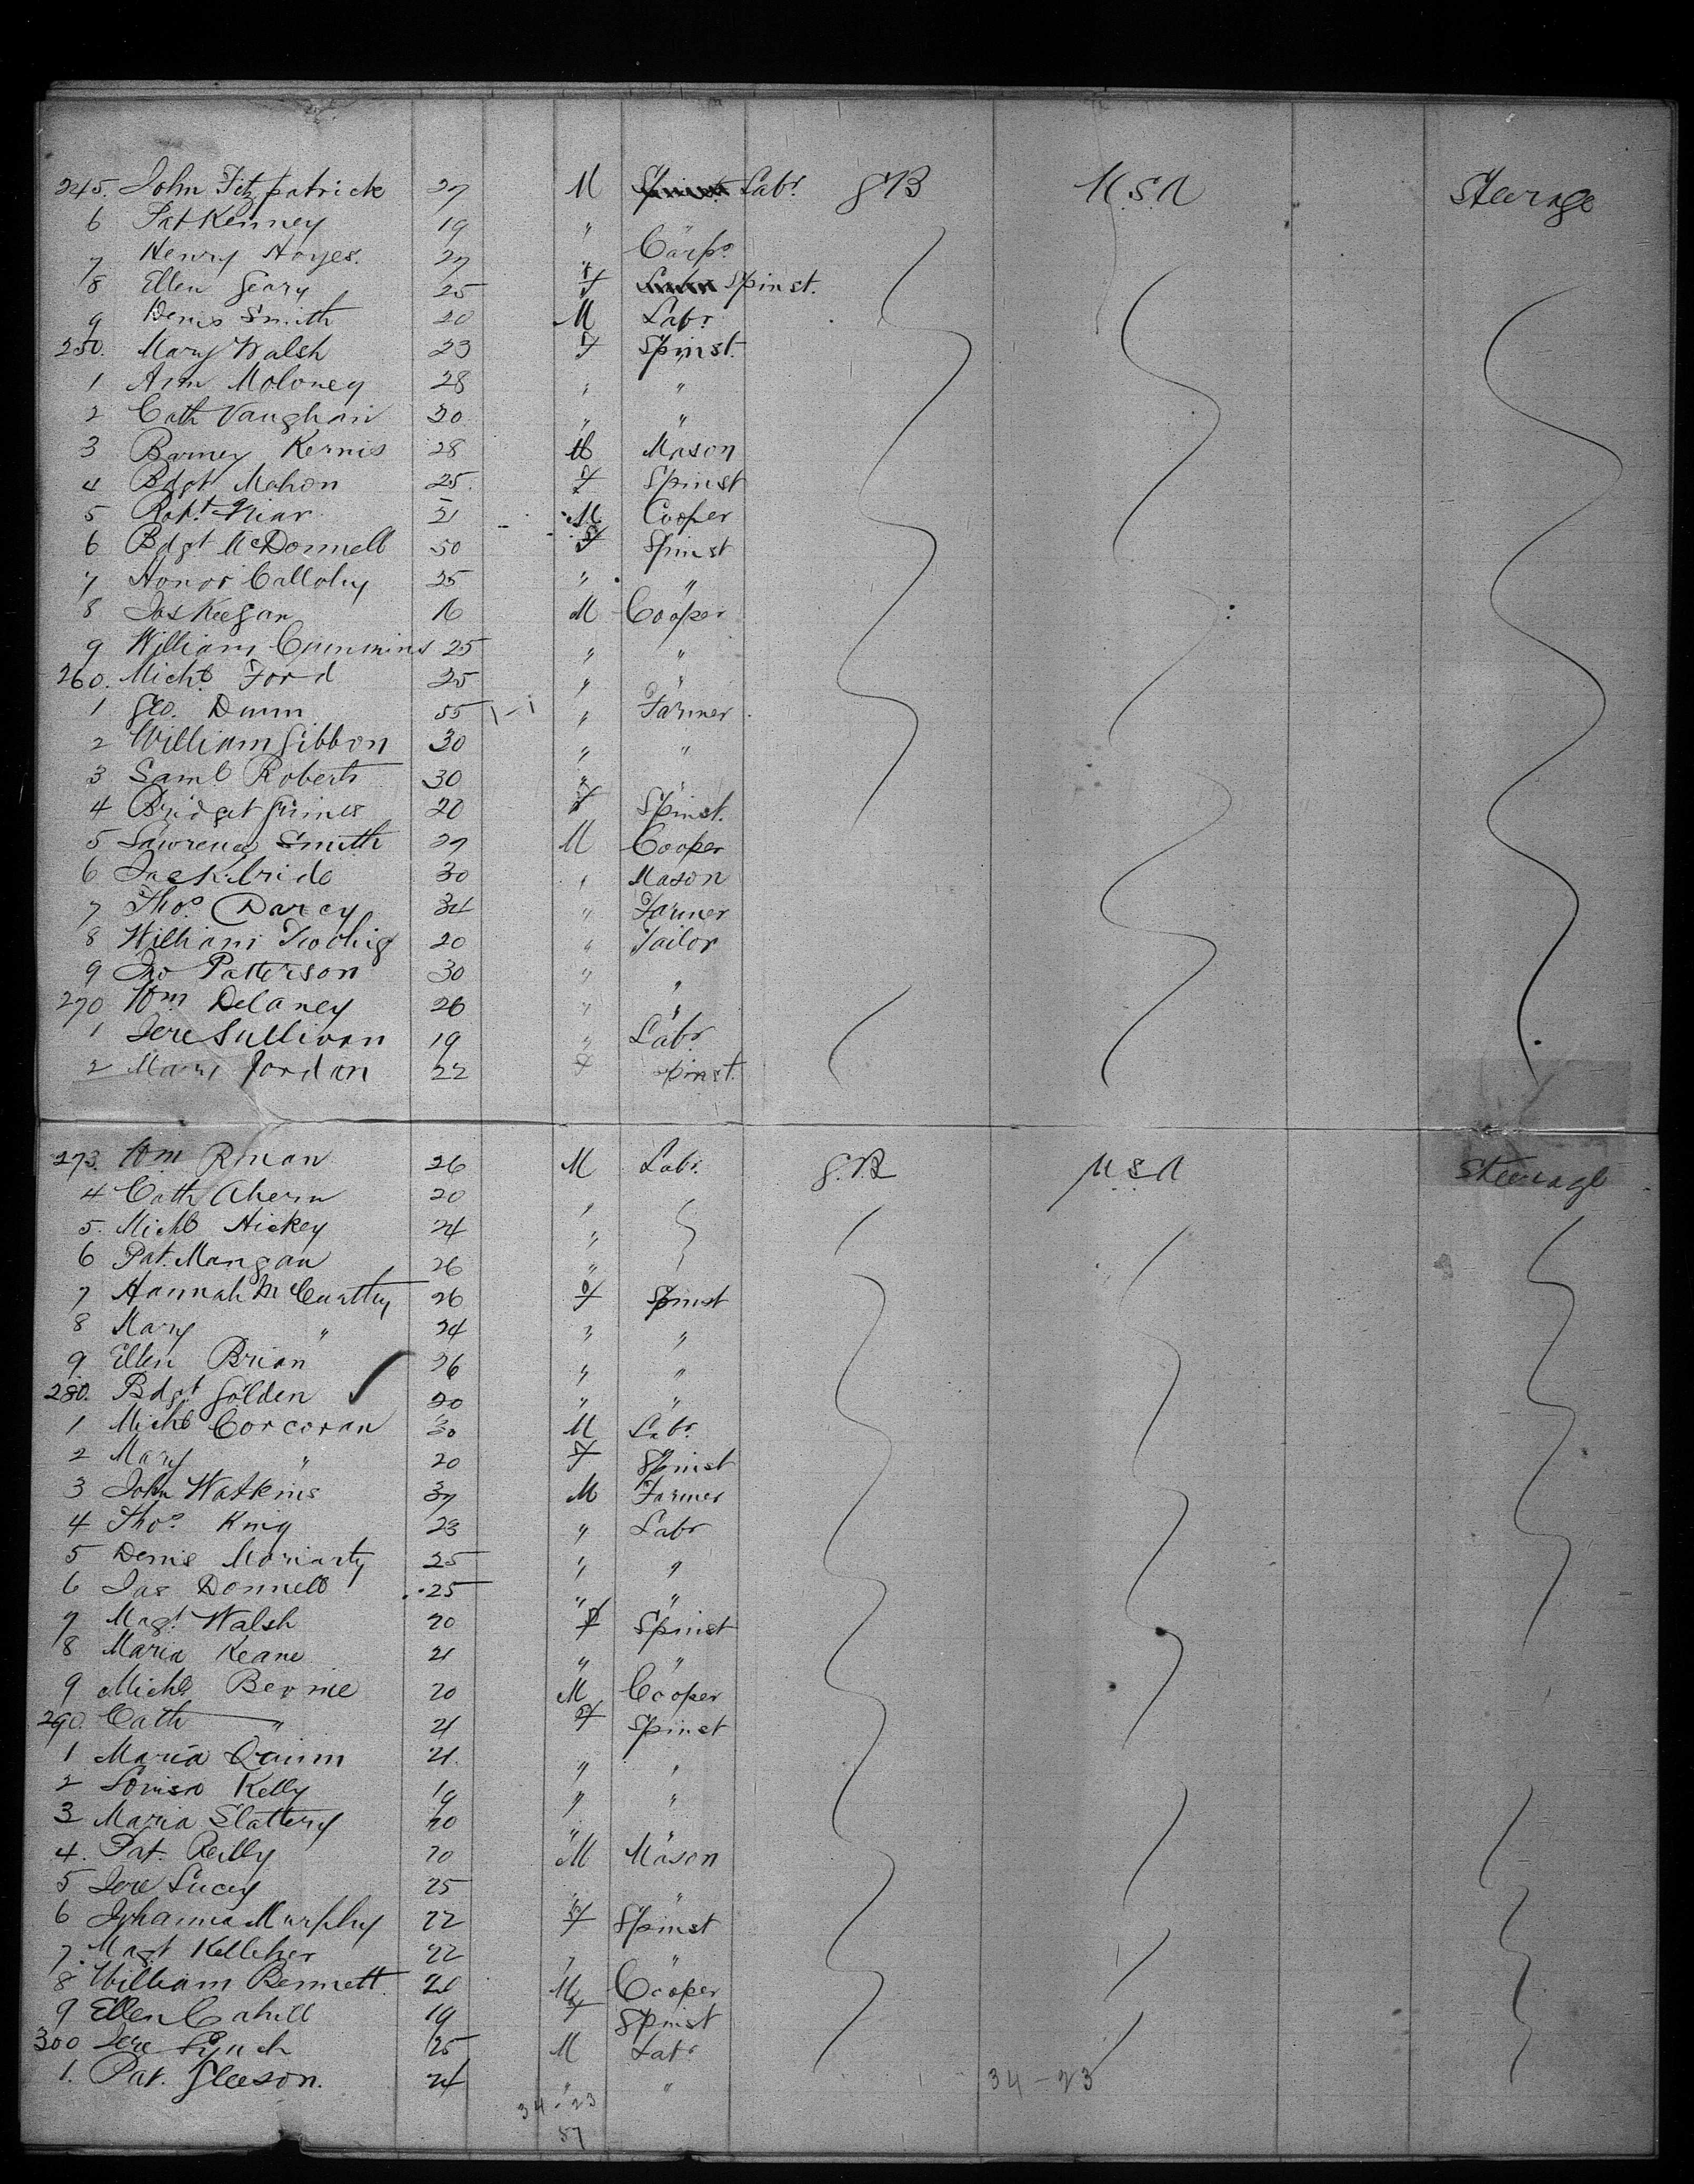 245. John Fitzpatrick 27 M Labr. G B U.S.A Steerage
6 Pat Kenney 19 " "
7 Henry Hayes. 27 " Carpr
8 Ellen Geary 25 F Spinst.
9 Denis Smith 20 M Labr
250. Mary Walsh 23 F Spinst.
1 Ann Moloney 28 " "
2 Cath Vaughan 20 " "
3 Barney Kernis 28 M Mason
4 Bdgt Mahon 25. F Spinst
5 Robt. 21 M Cooper
6 Bdgt McDonnell 50 F Spinst
7 Honor 25 " "
8 Jas Keegan 16 M Cooper
9 William Cummins 25 " "
260. Michl Ford 25 " "
1 Geo. Dunn 55 1-1 " Farmer
2 William Gibbon 30 " "
3 Saml Roberts 30 "
4 Bridget Grimes 20 F Spinst.
5 Lawrence Smith 27 M Cooper
6 30 " Mason
7 Thos Darcy 34 " Farmer
8 William Twohig 20 " Tailor
9 Jno Patterson 30 " "
270 Wm Delaney 26 " "
1 Jere Sullivan 19 " Labr
2 Mary Jordan 22 F Spinst.
273. Wm 26 M Labr. G.B U.S.A Steerage
4 Cath Ahern 20 "
5. Michl Hickey 24 "
6 Pat. Mangan 26 "
7 Hannah McCarthy 26 F Spinst
8 Mary " 24 " "
9 Ellen Brian 26 " "
280. Bdgt Golden 20 " "
1 Michl Corcoran 30 M Labr.
2 Mary " 20 F Spinst
3 John Watkins 37 M Farmer
4 Thos. King 23 " Labr
5 Denis Moriarty 25 " "
6 Jas Donnell 25 " "
7 Magt. Walsh 20 F Spinst
8 Maria Keane 21 " "
9 Michl 20 M Cooper
290. Cath " 21 F Spinst
1 Maria Quinn 21. " "
2 Louisa Kelly 19 " "
3 Maria Slattery 20 " "
4. Pat. Reilly 20 M Mason
5 Jere Lucey 25 " "
6 Johanna Murphy 22 F Spinst
7. Magt Kelleher 22 " "
8 William Bennett. 20 M Cooper
9 Ellen Cahill 19 F Spinst
300 Jere Lynch 25 M Labr
1. Pat. Gleeson. 24 " "
34-23
34-23
57